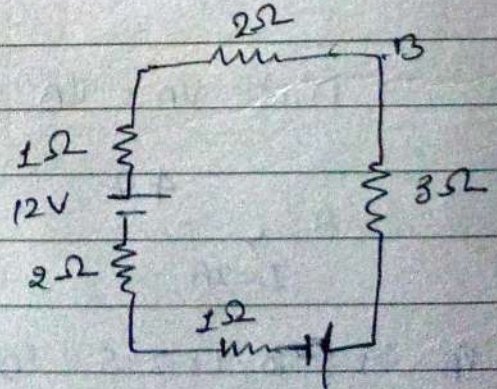 2Ω
B
1Ω
12V
3Ω
2Ω
1Ω